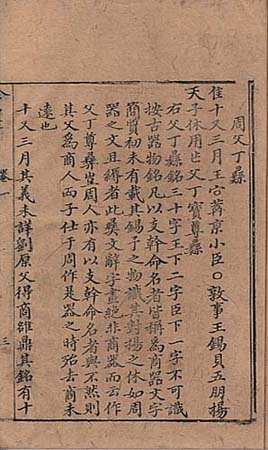 周父丁彝
隹十又三月王宮葊京小臣〇敦事王錫貝五朋揚
天子休用乍父丁寶尊彝
右父丁彝銘三十字王下二字臣下一字不可識
按古器物銘凡以支幹命名者皆稱為商器文字
簡質初未有載其錫予之物識其對揚之休如周
器之文且縟者此彝文辭字畫絕非商器而云作
父丁尊彝豈周人亦有以支幹命名者與不然則
其父為商人而子仕于周作是器之時殆去商未
遠也
十又三月其義未詳劉原父得商雒鼎其銘有十
卷一
三